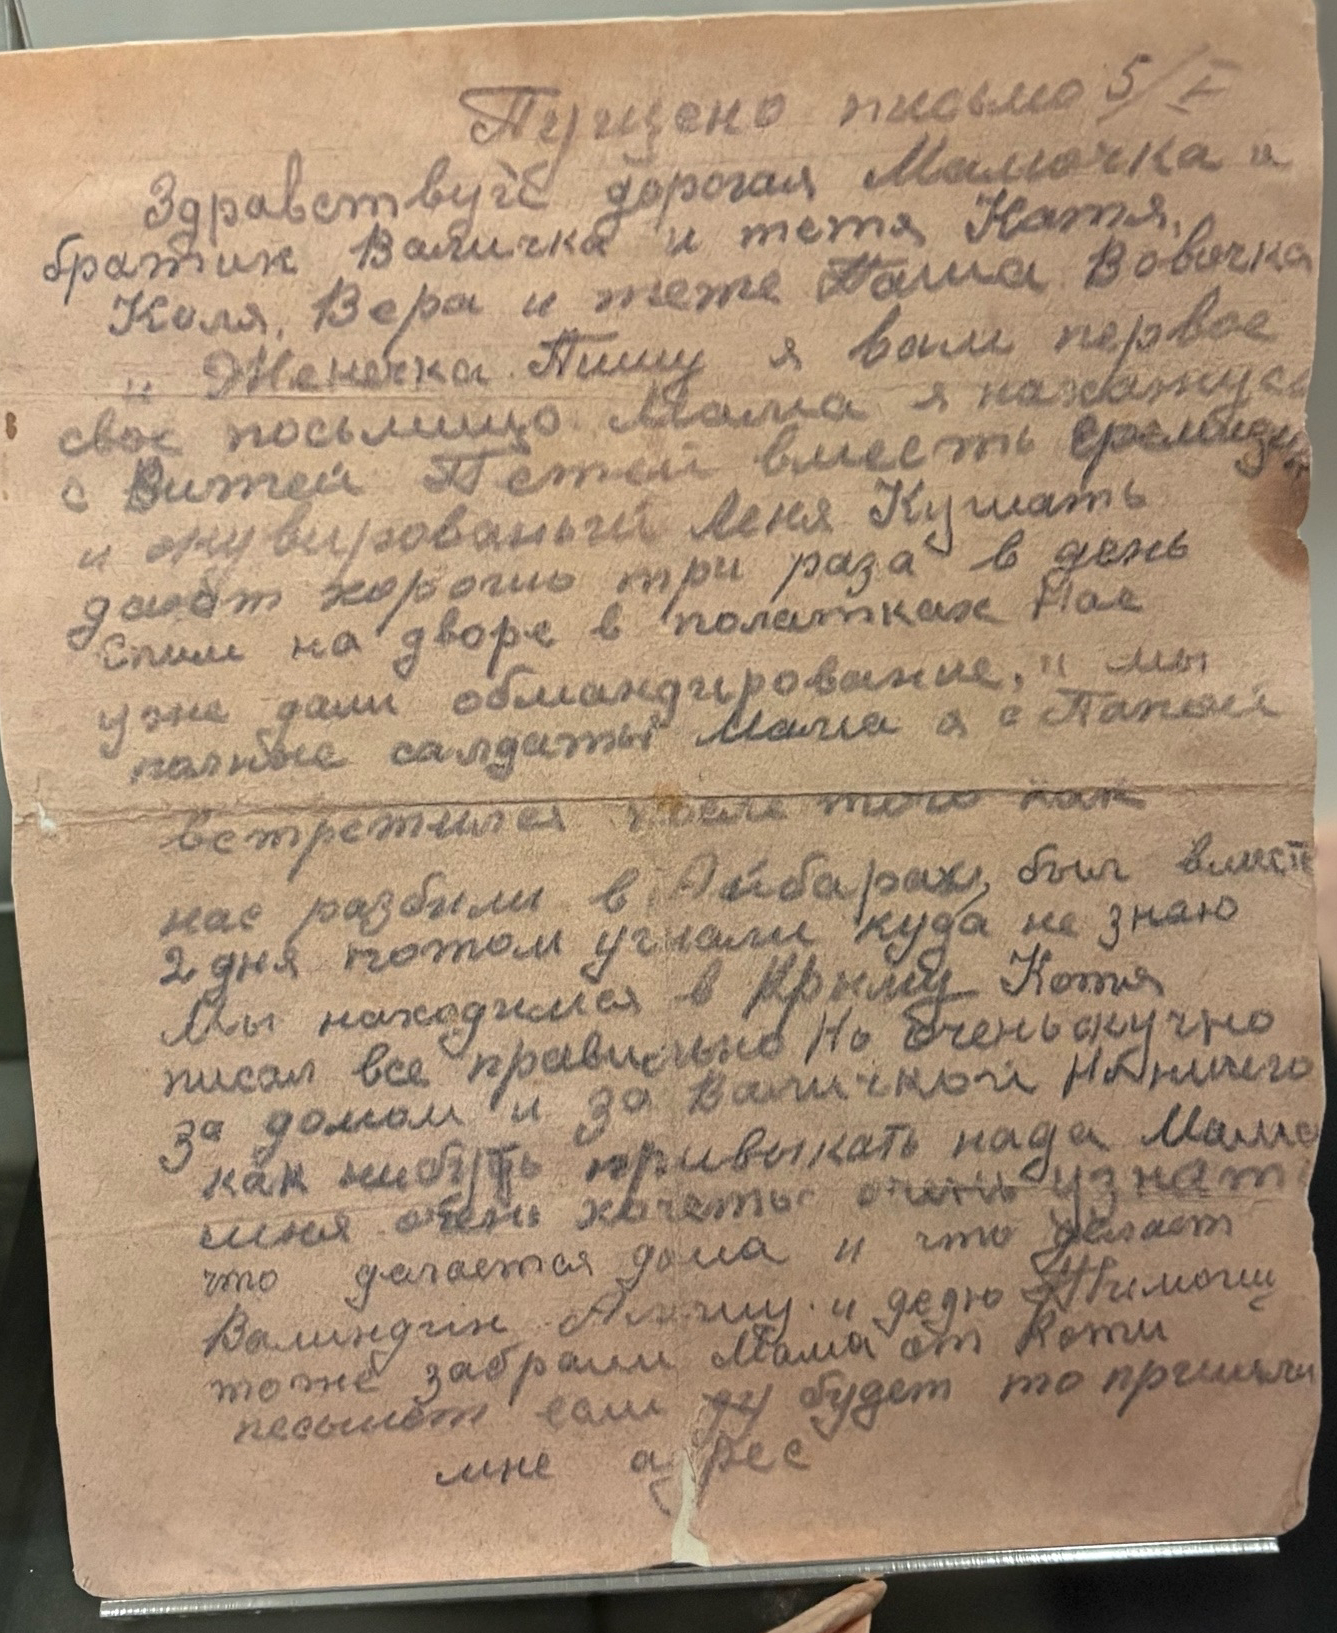 Пущено письмо 5/I
Здравствуй дорогая Мамочка и
братик Валичка и тетя Катя,
Коля, Вера и теже Паша Вовочка
и Женечка. Пишу я вам первое
свое посьмищо Мама я нахажусь
с Витей Петей вместь
и меня Кушать
дают хорошо три раза в день
Спим на дворе в полатках Нас
уже дали обмандирование, и мы
полные салдаты Мама я с Папой
встретился после того как
нас разбили в Айбарах, был вместе
2 дня потом угнали куда не знаю
Мы находимся в Крыму Котя
писал все правильно Но очень скучно
за домом и за Валичкой Но ничего
как нибуть привыкать нада Мама
миня очень хочеться очень узнать
что делается дома и что делает
Валиндин и дедю
тоже забрали Мама от Коти
песымот если будет то пришли
мне адрес